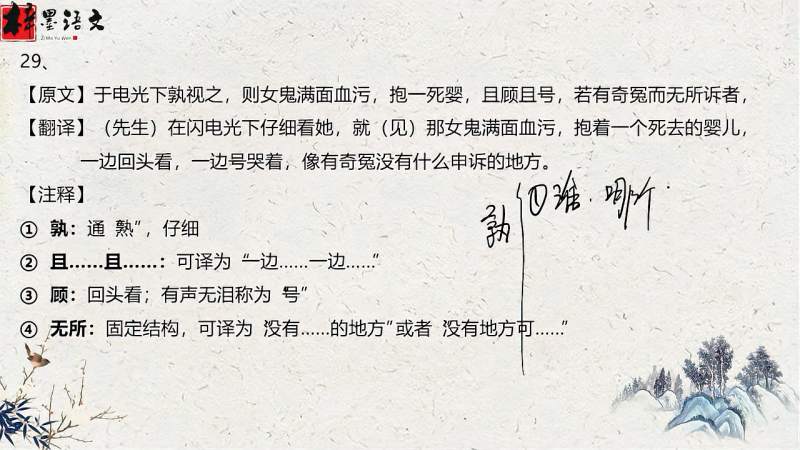 梓墨语文
Zi Mo Yu Wen
29、
【原文】于电光下孰视之，则女鬼满面血污，抱一死婴，且顾且号，若有奇冤而无所诉者，
【翻译】（先生）在闪电光下仔细看她，就（见）那女鬼满面血污，抱着一个死去的婴儿，
一边回头看，一边号哭着，像有奇冤没有什么申诉的地方。
【注释】
① 孰：通“熟”，仔细
② 且……且……：可译为“一边……一边……”
③ 顾：回头看；有声无泪称为“号”
④ 无所：固定结构，可译为“没有……的地方”或者“没有地方可……”
孰 ①谁.哪个.